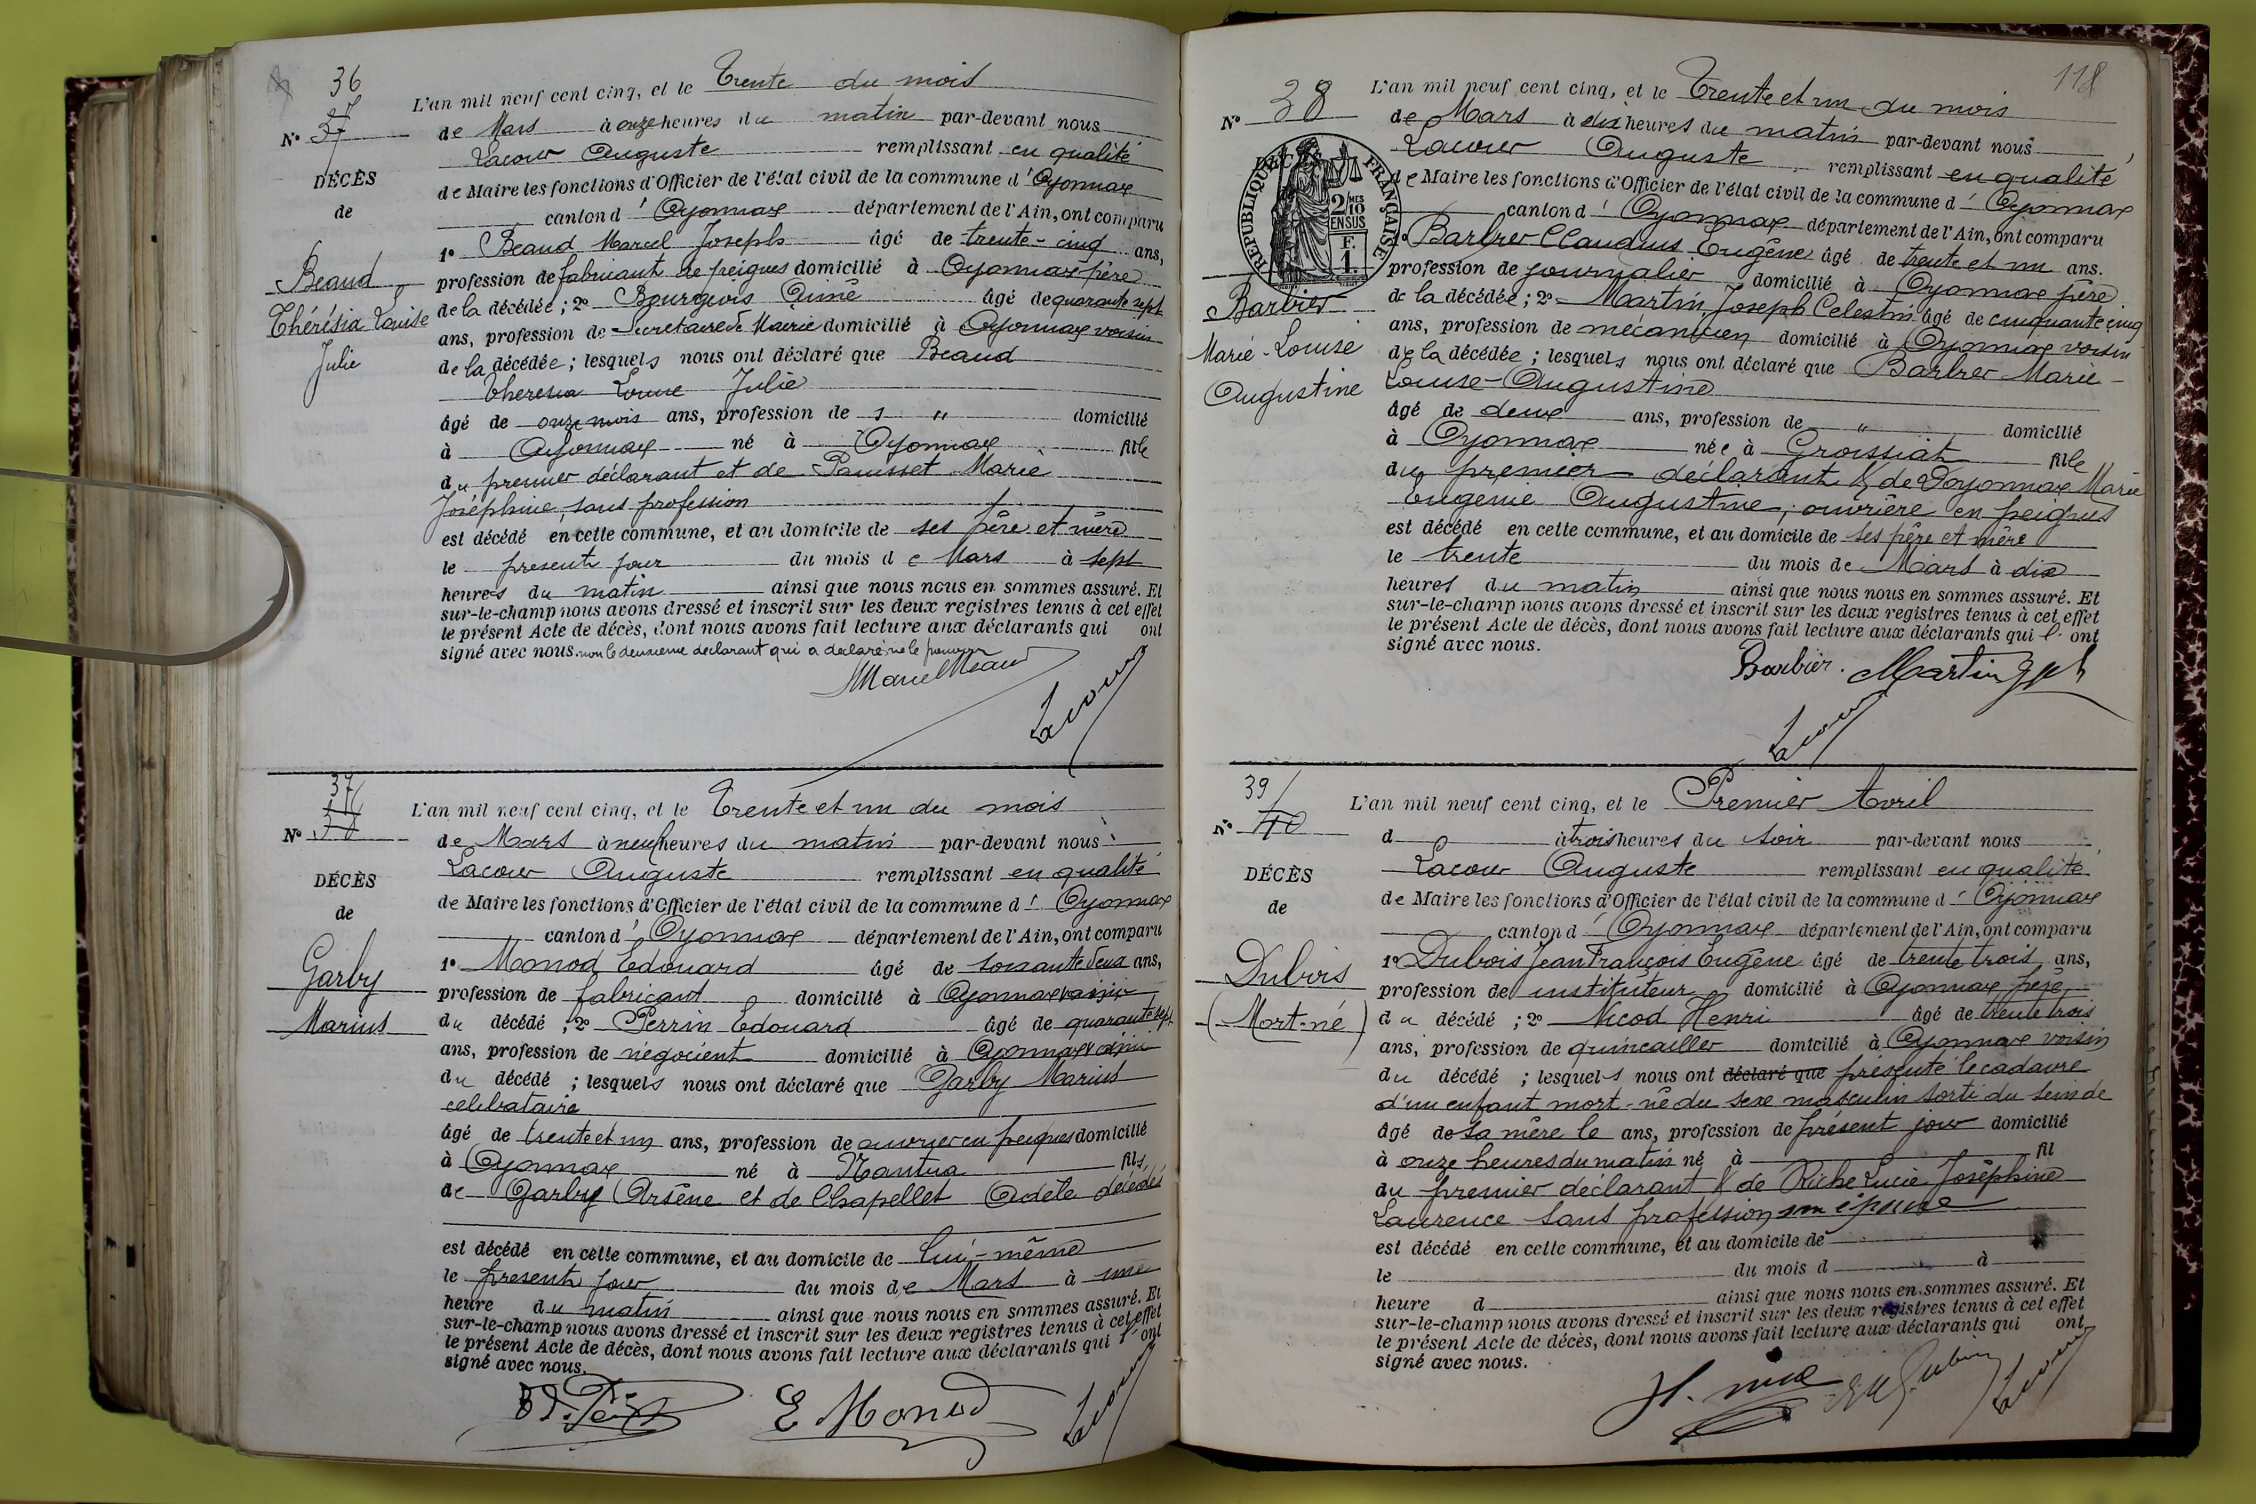 36
37
N° 37
DÉCÈS
de
Beaud
Thérésia Louise
Julie
L'an mil neuf cent cinq, et le Trente du mois
de Mars à onze heures du matin par-devant nous
Lacour Auguste remplissant en qualité
de Maire les fonctions d'Officier de l'état civil de la commune d' Oyonnax
canton d' Oyonnax département de l'Ain, ont comparu
1° Beaud Marcel Joseph âgé de trente-cinq ans,
profession de fabricant de peignes domicilié à Oyonnax père
de la décédée ; 2° Bourgeois Aimé âgé de quarante sept
ans, profession de Secrétaire de Mairie domicilié à Oyonnax voisin
de la décédée ; lesquels nous ont déclaré que Beaud
Theresia Louise Julie
âgé de onze mois ans, profession de s " domicilié
à Oyonnax né à Oyonnax fille
du premier déclarant et de Panisset Marie
Joséphine, sans profession
est décédé en cette commune, et au domicile de ses père et mère
le présent jour du mois de Mars à sept
heures du matin ainsi que nous nous en sommes assuré. Et
sur-le-champ nous avons dressé et inscrit sur les deux registres tenus à cet effet
le présent Acte de décès, dont nous avons fait lecture aux déclarants qui ont
signé avec nous. non le deuxième déclarant qui a déclaré ne le pouvoir
Marcel Beaud
Lacour
37
N° 38
DÉCÈS
de
Garby
Marius
L'an mil neuf cent cinq, et le Trente et un du mois
de Mars à neuf heures du matin par-devant nous
Lacour Auguste remplissant en qualité
de Maire les fonctions d'Officier de l'état civil de la commune d' Oyonnax
canton d' Oyonnax département de l'Ain, ont comparu
1° Monod Edouard âgé de soixante deux ans,
profession de fabricant domicilié à Oyonnax voisin
du décédé ; 2° Perrin Edouard âgé de quarante sept
ans, profession de négocient domicilié à Oyonnax voisin
du décédé ; lesquels nous ont déclaré que Garby Marius
celibataire
âgé de trente et un ans, profession de ouvrier en peignes domicilié
à Oyonnax né à Nantua fils,
de Garby Arsène et de Chapellet Adèle décédés
est décédé en cette commune, et au domicile de lui-même
le présent jour du mois de Mars à une
heure du matin ainsi que nous nous en sommes assuré. Et
sur-le-champ nous avons dressé et inscrit sur les deux registres tenus à cet effet
le présent Acte de décès, dont nous avons fait lecture aux déclarants qui l' ont
signé avec nous.
E Monod
Lacour
118
N° 38
DÉCÈS
RÉPUBLIQUE FRANÇAISE
2/10 MES
EN SUS
F.
1.
Barbier
Marie-Louise
Augustine
L'an mil neuf cent cinq, et le Trente et un du mois
de Mars à dix heures du matin par-devant nous
Lacour Auguste remplissant en qualité
de Maire les fonctions d'Officier de l'état civil de la commune d' Oyonnax
canton d' Oyonnax département de l'Ain, ont comparu
1° Barbier Claudius Eugène âgé de trente et un ans.
profession de journalier domicilié à Oyonnax père
de la décédée ; 2° Martin Joseph Celestin âgé de cinquante cinq
ans, profession de mécanicien domicilié à Oyonnax voisin
de la décédée ; lesquels nous ont déclaré que Barbier Marie-
Louise-Augustine
âgé de deux ans, profession de " domicilié
à Oyonnax née à Groissiat fille
du premier déclarant & de Doyonnax Marie
Eugenie Augustine, ouvrière en peignes
est décédé en cette commune, et au domicile de ses père et mère
le trente du mois de Mars à dix
heures du matin ainsi que nous nous en sommes assuré. Et
sur-le-champ nous avons dressé et inscrit sur les deux registres tenus à cet effet
le présent Acte de décès, dont nous avons fait lecture aux déclarants qui l' ont
signé avec nous.
Barbier. Martin Jph
Lacour
39
N° 40
DÉCÈS
de
Dubois
(Mort-né)
L'an mil neuf cent cinq, et le Premier Avril
d à trois heures du soir par-devant nous
Lacour Auguste remplissant en qualité
de Maire les fonctions d'Officier de l'état civil de la commune d' Oyonnax
canton d' Oyonnax département de l'Ain, ont comparu
1° Dubois Jean François Eugène âgé de trente trois ans,
profession de instituteur domicilié à Oyonnax père
du décédé ; 2° Nicod Henri âgé de trente trois
ans, profession de quincailler domicilié à Oyonnax voisin
du décédé ; lesquels nous ont déclaré que présenté le cadavre
d'un enfant mort-né du sexe masculin sorti du sein de
âgé de sa mère le ans, profession de présent jour domicilié
à onze heures du matin né à fil
du premier déclarant & de Riche Lucie Joséphine
Laurence sans profession son épouse
est décédé en cette commune, et au domicile de
le du mois d à
heure d ainsi que nous nous en sommes assuré. Et
sur-le-champ nous avons dressé et inscrit sur les deux registres tenus à cet effet
le présent Acte de décès, dont nous avons fait lecture aux déclarants qui ont
signé avec nous.
H. Nicod
Lacour